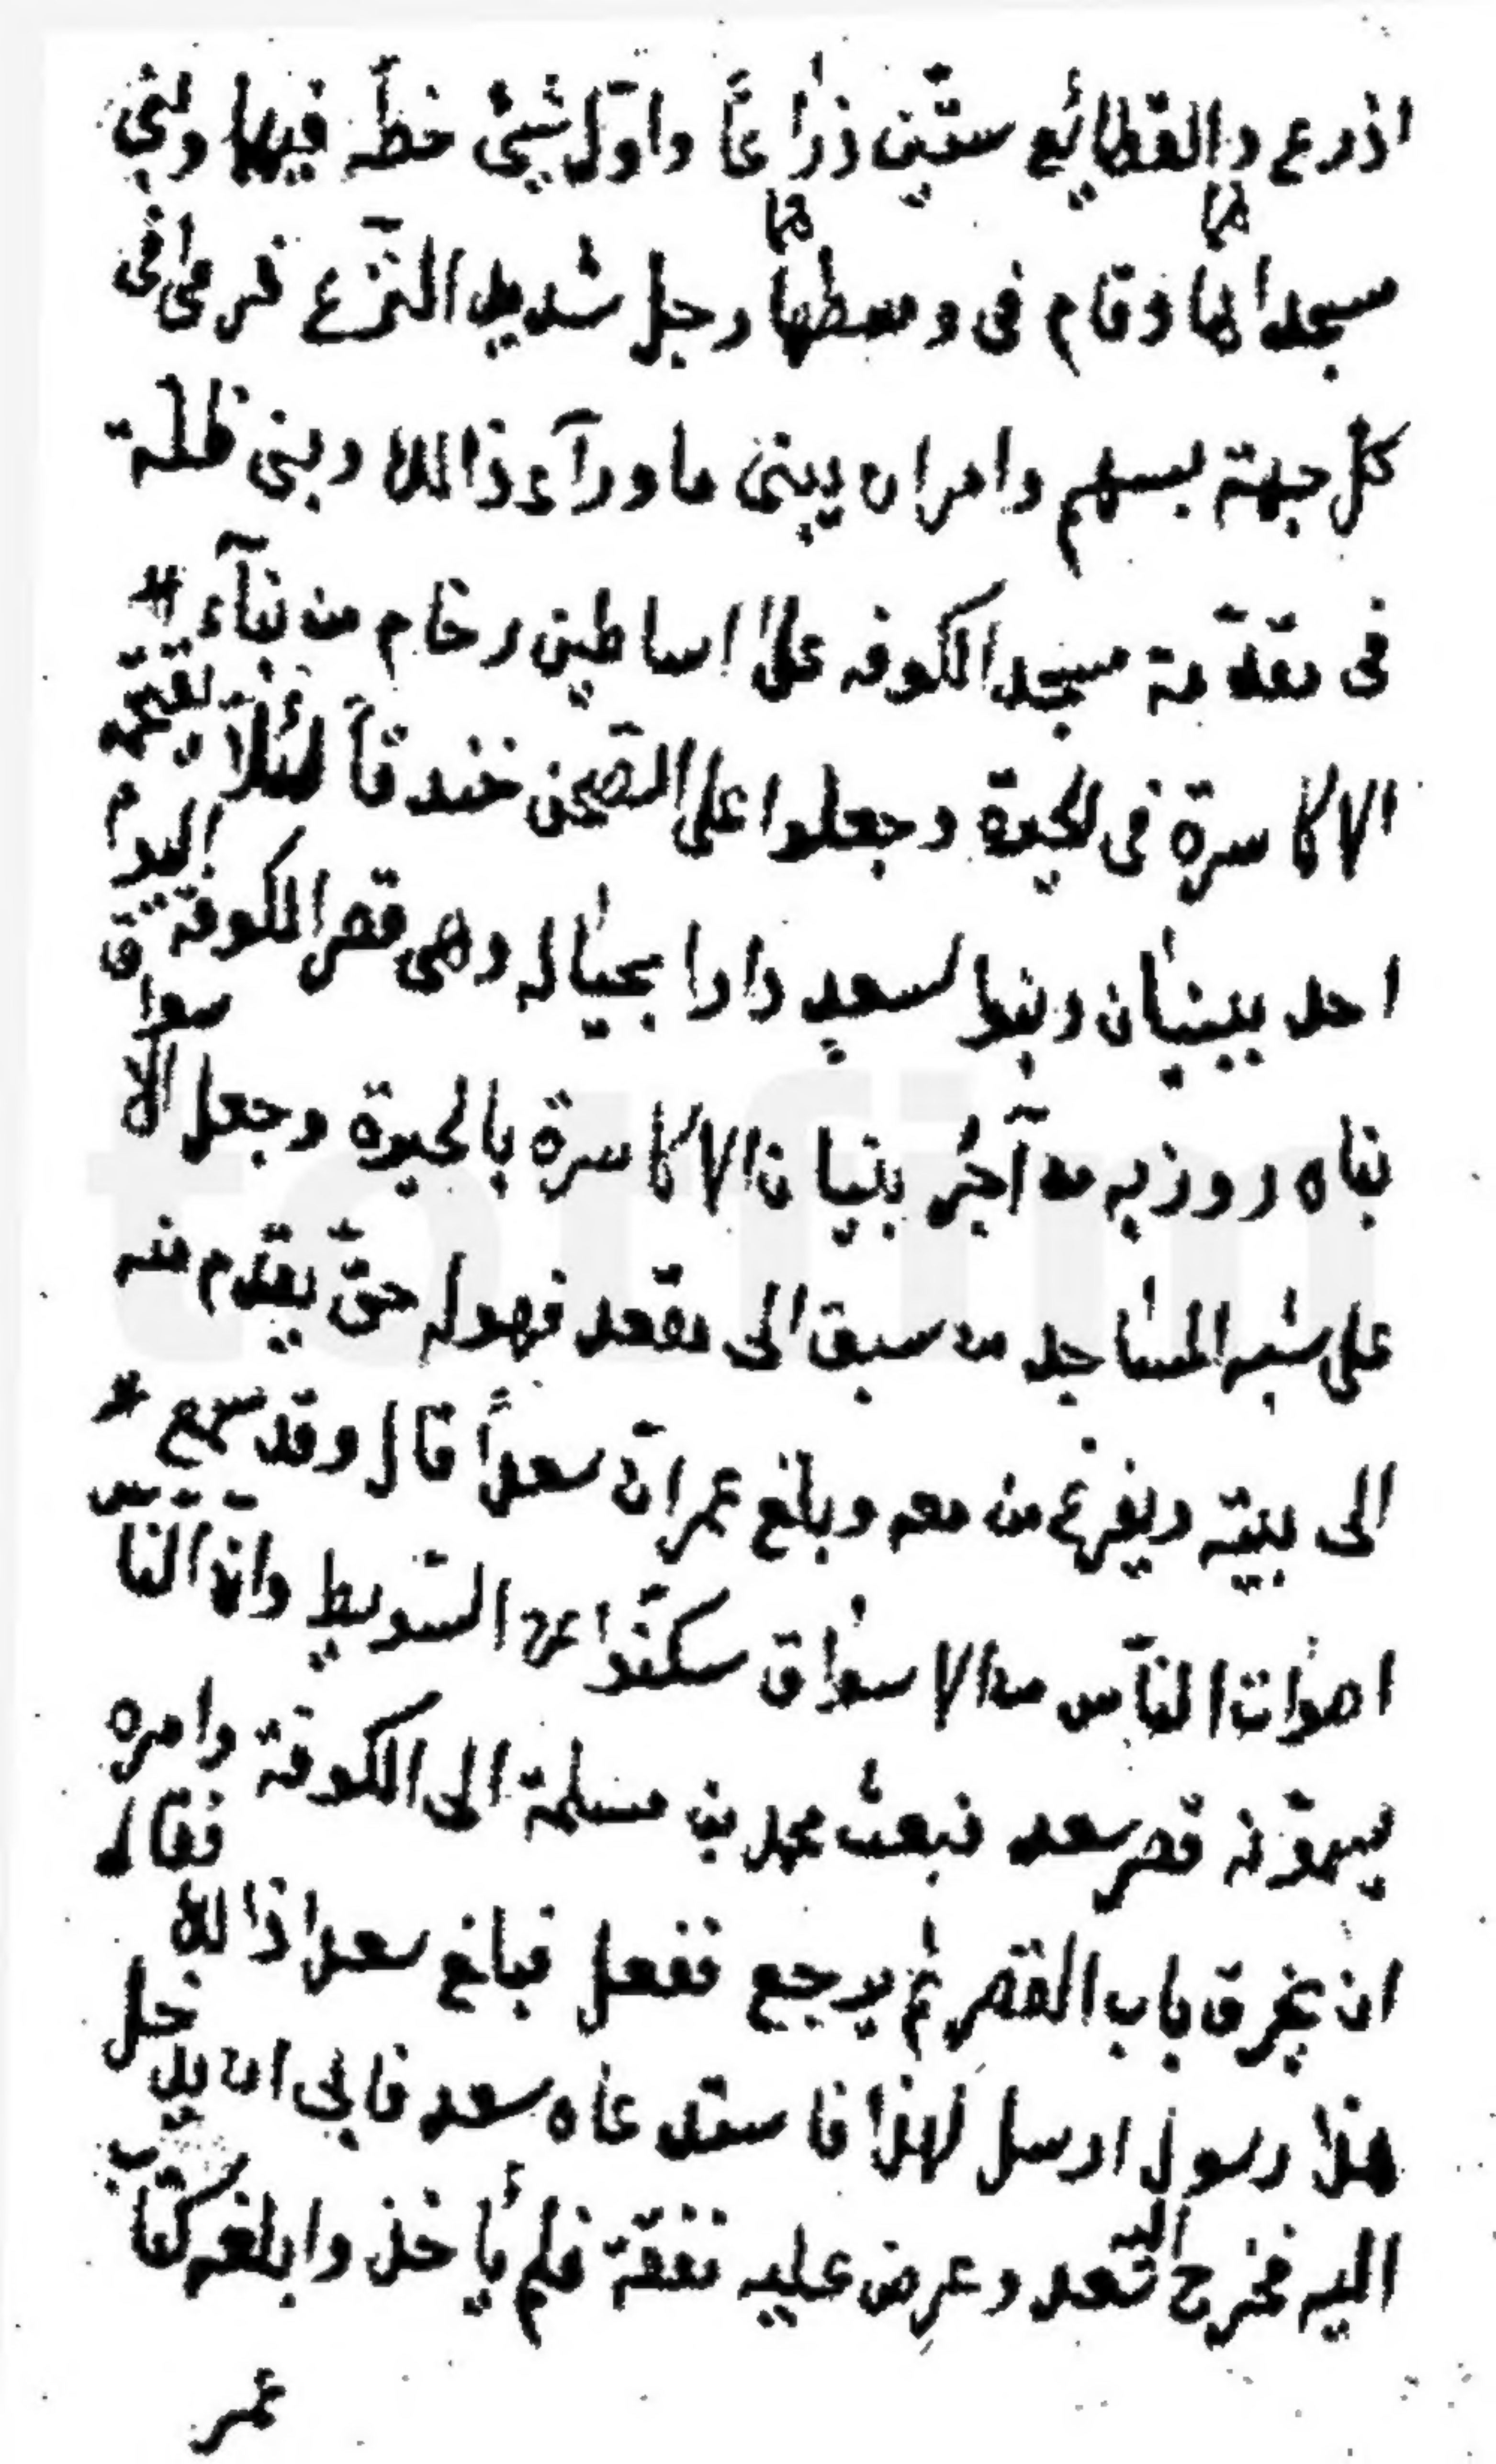 اذرع والقطائع ستّين ذرٰاعاً واوّل شيئ خطّه فيها وبنى
هما هما
مسجدا لها وقام فى وسطها رجل شديد النّزع فرمى فى
كل جهة بسهم وامر ان يبنى ما ورآء ذالك وبنى ظلّة
فى مقدّمة مسجد الكوفه علىٰ اساطين رخام من بنآء
الاكاسرة فى الحيرة وجعلوا على الصّحن خندقاً لئلّا يقتحمه
احد ببنيٰان وبنوا لسعدٍ دارا بحيٰاله وهى قصر الكوفة اليوم
بناه روزبه من آجُر بنيان الاكاسرة بالحيرة وجعل الاسواق
على شبه المسٰاجد من سبق الى مقعد فهو له حتّى يقدم منه
الى بيته ويفرغ من معه وبلغ عمر انّ سعداً قال وقد سمع
اصوٰات النّاس من الاسوٰاق سكّنوا عن السّويط وانّ النّاس
يسمّونه قصر سعد فبعث محمد بن مسلمة الى الكوفة وامره
ان يخرق باب القصر ثم يرجع ففعل فبلغ سعدا ذالك فقال
هذا رسول ارسل لهذا فاستدعاه سعد فابى ان يدخل
اليه فخرج اليه سعد وعرض عليه نفقة فلم يأخذ وابلغه كتاب
عمر